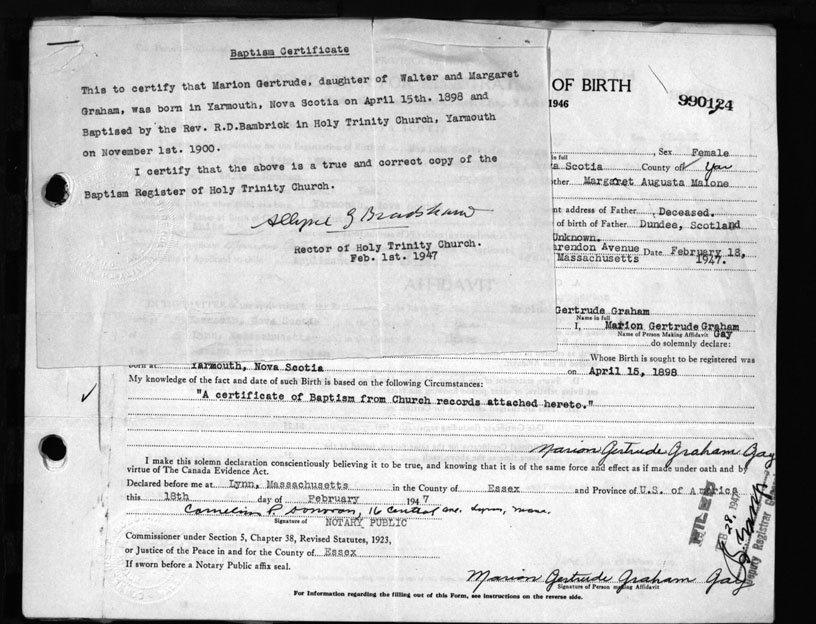 Baptism Certificate
This to certify that Marion Gertrude, daughter of Walter and Margaret
Graham, was born in Yarmouth, Nova Scotia on April 15th. 1898 and
Baptised by the Rev. R.D.Bambrick in Holy Trinity Church, Yarmouth
on November 1st. 1900.
I certify that the above is a true and correct copy of the
Baptism Register of Holy Trinity Church.
Bradshaw
Rector of Holy Trinity Church.
Feb. 1st. 1947
OF BIRTH
1946
990124
in full , Sex Female
Scotia County of Yar
Margaret Augusta Malone
nt address of Father Deceased.
of birth of Father Dundee, Scotland
Unknown.
arendon Avenue Date February 18,
Massachusetts 1947.
Gertrude Graham
Name in full
I, Marion Gertrude Graham
Name of Person Making Affidavit Gay
do solemnly declare:
Whose Birth is sought to be registered was
born at Yarmouth, Nova Scotia on April 15, 1898
My knowledge of the fact and date of such Birth is based on the following Circumstances:
"A certificate of Baptism from Church records attached hereto."
Marion Gertrude Graham Gay
I make this solemn declaration conscientiously believing it to be true, and knowing that it is of the same force and effect as if made under oath and by
virtue of The Canada Evidence Act.
Declared before me at Lynn, Massachusetts in the County of Essex and Province of U.S. of America
this 18th day of February 1947
Cornelius P Donovan, 16 Central Ave. Lynn, Mass.
Signature of NOTARY PUBLIC
Commissioner under Section 5, Chapter 38, Revised Statutes, 1923,
or Justice of the Peace in and for the County of Essex
If sworn before a Notary Public affix seal.
FILED
FEB 28, 1947
Deputy Registrar
Marion Gertrude Graham Gay
Signature of Person making Affidavit
For Information regarding the filling out of this Form, see instructions on the reverse side.